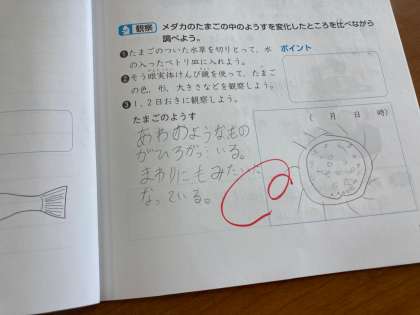 観察 メダカのたまごの中のようすを変化したところを比べながら
調べよう。
❶たまごのついた水草を切りとって、水
の入ったペトリ皿に入れよう。
❷そう眼実体けんび鏡を使って、たまご
の色、形、大きさなどを観察しよう。
❸1、2日おきに観察しよう。
ポイント
たまごのようす
( 月 日 時)
あわのようなもの
がひろがっ いる。
まわりにもみたいな
なっている。